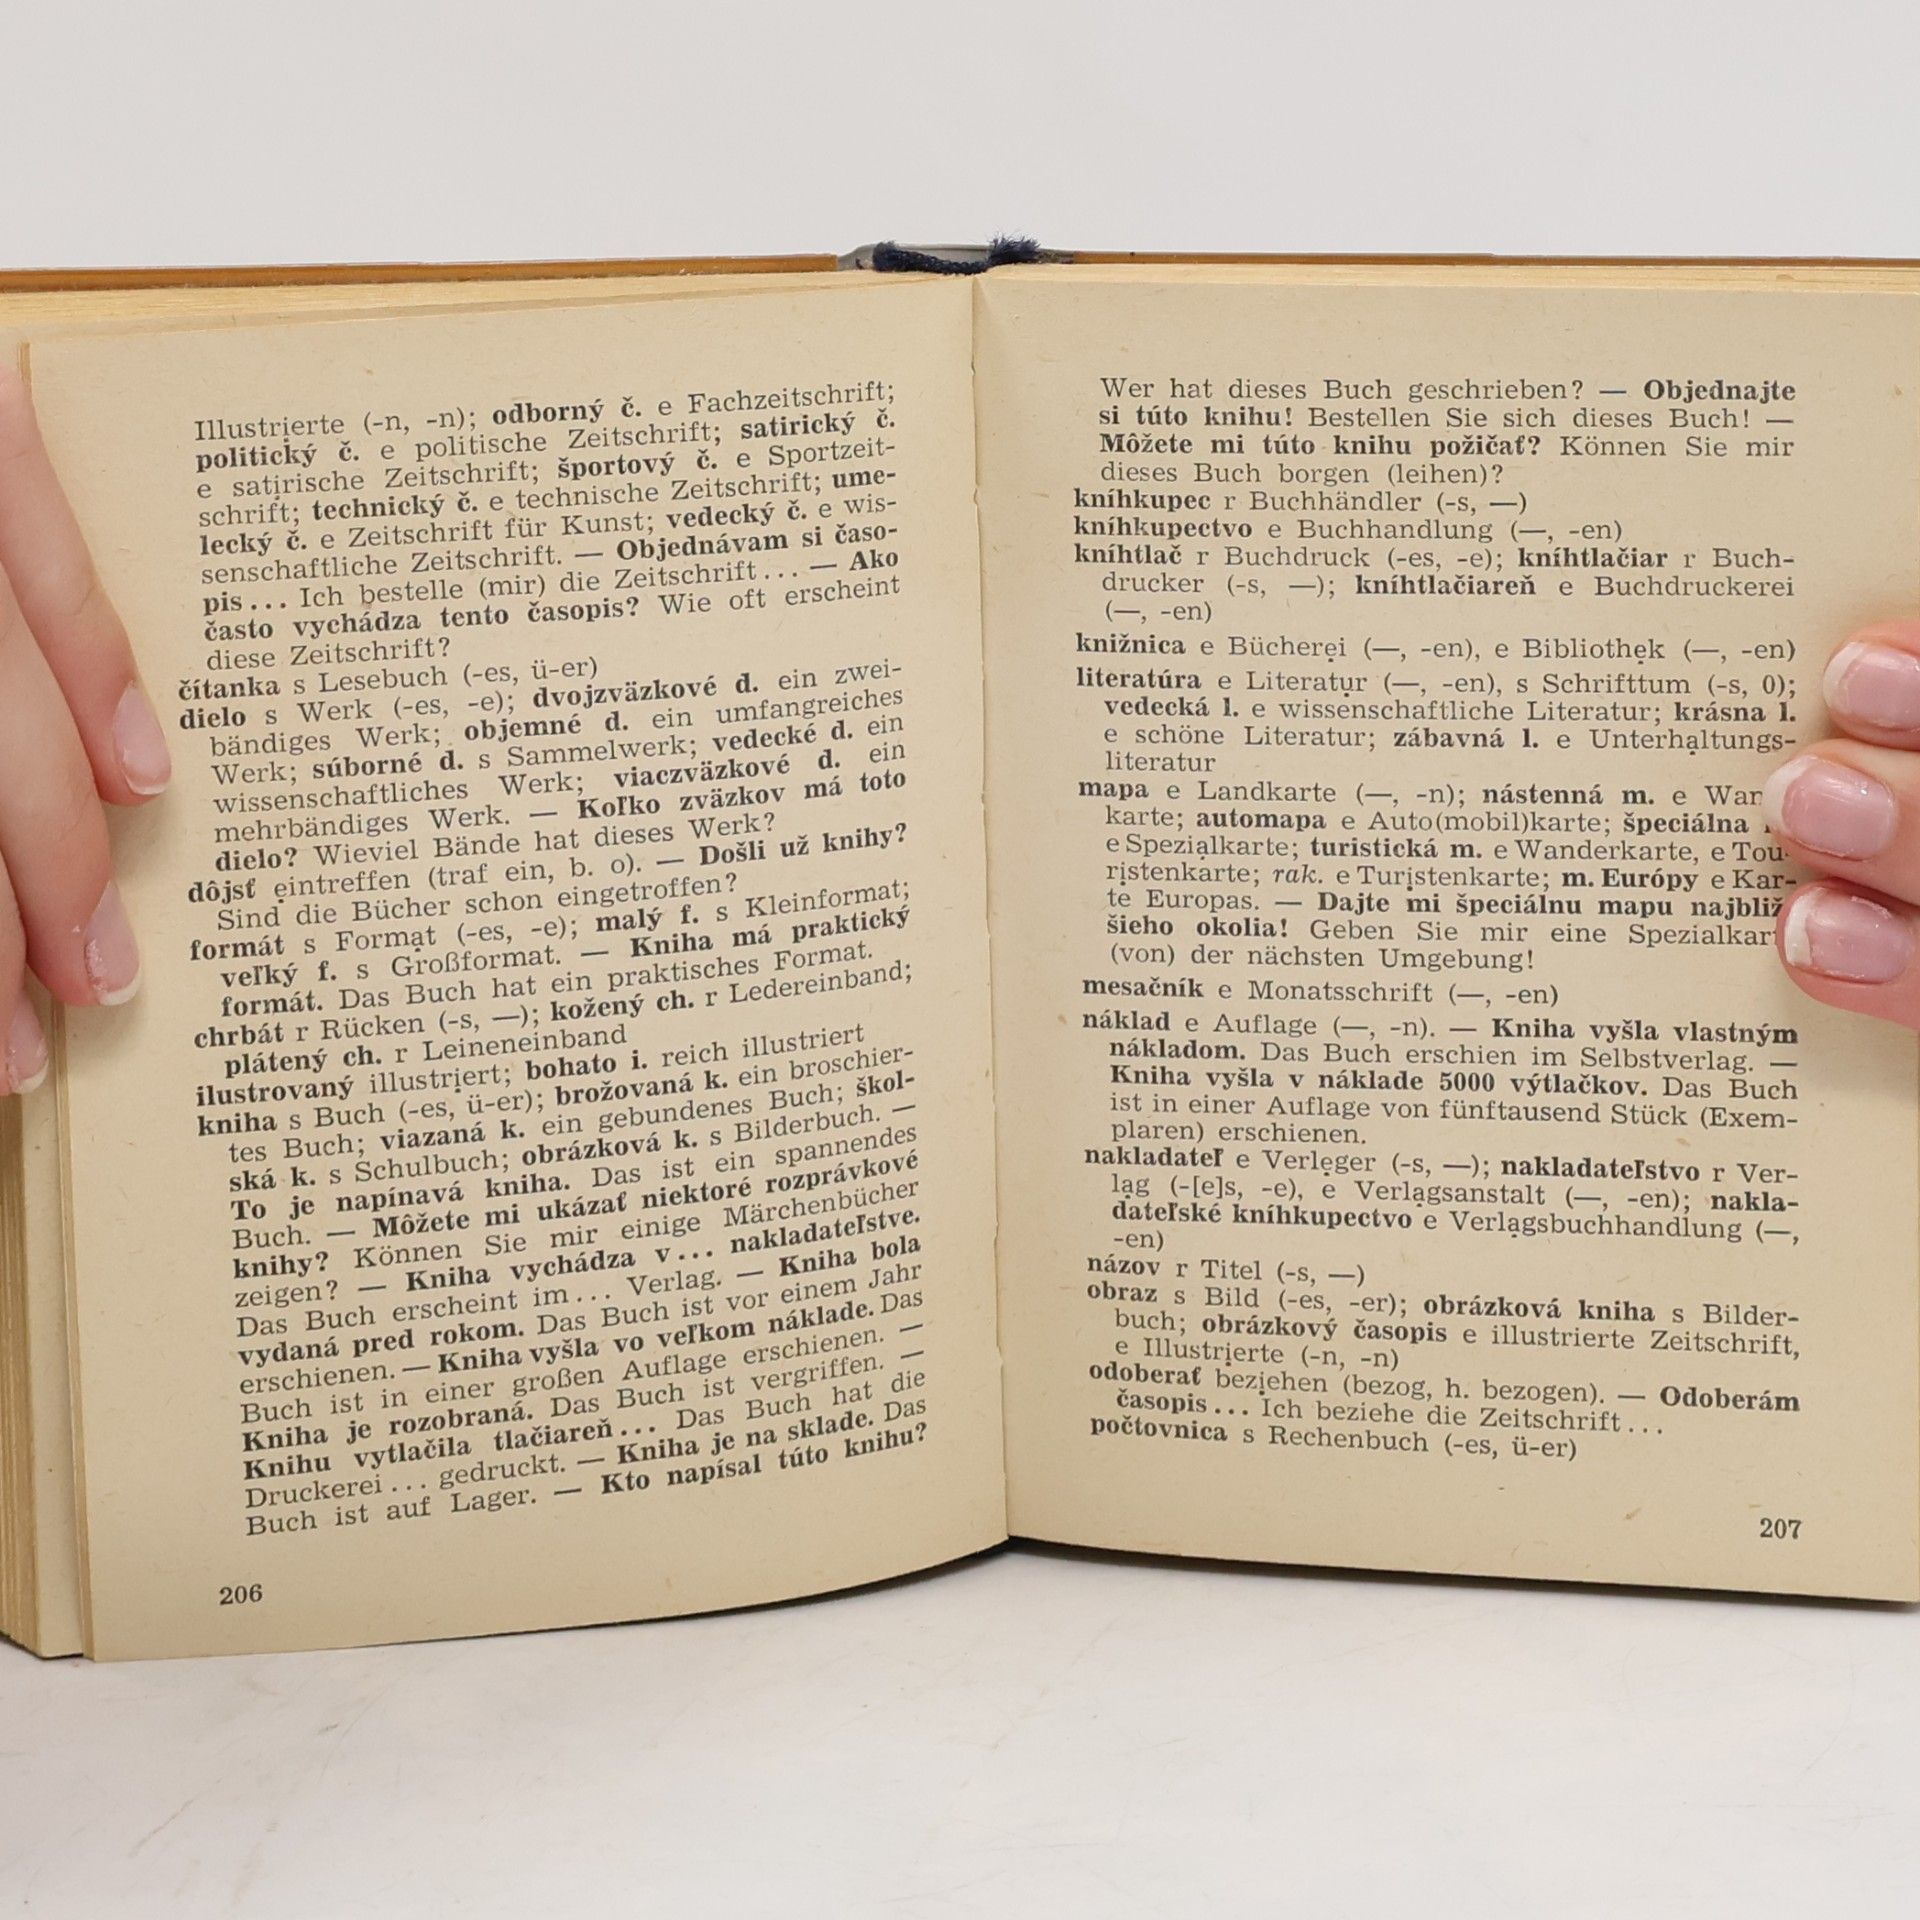 Illustrierte (-n, -n); odborný č. e Fachzeitschrift;
politický č. e politische Zeitschrift; satirický č.
e satirische Zeitschrift; športový č. e Sportzeit-
schrift; technický č. e technische Zeitschrift; ume-
lecký č. e Zeitschrift für Kunst; vedecký č. e wis-
senschaftliche Zeitschrift. — Objednávam si časo-
pis... Ich bestelle (mir) die Zeitschrift... — Ako
často vychádza tento časopis? Wie oft erscheint
diese Zeitschrift?
čítanka s Lesebuch (-es, ü-er)
dielo s Werk (-es, -e); dvojzväzkové d. ein zwei-
bändiges Werk; objemné d. ein umfangreiches
Werk; súborné d. s Sammelwerk; vedecké d. ein
wissenschaftliches Werk; viaczväzkové d. ein
mehrbändiges Werk. — Koľko zväzkov má toto
dielo? Wieviel Bände hat dieses Werk?
dôjsť ẹintreffen (traf ein, b. o). — Došli už knihy?
Sind die Bücher schon eingetroffen?
formát s Formạt (-es, -e); malý f. s Kleinformat;
veľký f. s Großformat. — Kniha má praktický
formát. Das Buch hat ein praktisches Format.
chrbát r Rücken (-s, —); kožený ch. r Ledereinband;
plátený ch. r Leineneinband
ilustrovaný illustriẹrt; bohato i. reich illustriert
kniha s Buch (-es, ü-er); brožovaná k. ein broschier-
tes Buch; viazaná k. ein gebundenes Buch; škol-
ská k. s Schulbuch; obrázková k. s Bilderbuch. —
To je napínavá kniha. Das ist ein spannendes
Buch. — Môžete mi ukázať niektoré rozprávkové
knihy? Können Sie mir einige Märchenbücher
zeigen? — Kniha vychádza v... nakladateľstve.
Das Buch erscheint im... Verlag. — Kniha bola
vydaná pred rokom. Das Buch ist vor einem Jahr
erschienen. — Kniha vyšla vo veľkom náklade. Das
Buch ist in einer großen Auflage erschienen. —
Kniha je rozobraná. Das Buch ist vergriffen. —
Knihu vytlačila tlačiareň... Das Buch hat die
Druckerei... gedruckt. — Kniha je na sklade. Das
Buch ist auf Lager. — Kto napísal túto knihu?
206
Wer hat dieses Buch geschrieben? — Objednajte
si túto knihu! Bestellen Sie sich dieses Buch! —
Môžete mi túto knihu požičať? Können Sie mir
dieses Buch borgen (leihen)?
kníhkupec r Buchhändler (-s, —)
kníhkupectvo e Buchhandlung (—, -en)
kníhtlač r Buchdruck (-es, -e); kníhtlačiar r Buch-
drucker (-s, —); kníhtlačiareň e Buchdruckerei
(—, -en)
knižnica e Bücherẹi (—, -en), e Bibliothẹk (—, -en)
literatúra e Literatụr (—, -en), s Schrifttum (-s, 0);
vedecká l. e wissenschaftliche Literatur; krásna l.
e schöne Literatur; zábavná l. e Unterhạltungs-
literatur
mapa e Landkarte (—, -n); nástenná m. e
karte; automapa e Auto(mobil)karte; špeciálna
e Speziạlkarte; turistická m. e Wanderkarte, e Tou-
rịstenkarte; rak. e Turịstenkarte; m. Európy e Kar-
te Europas. — Dajte mi špeciálnu mapu najbliž-
šieho okolia! Geben Sie mir eine
(von) der nächsten Umgebung!
mesačník e Monatsschrift (—, -en)
náklad e Auflage (—, -n). — Kniha vyšla vlastným
nákladom. Das Buch erschien im Selbstverlag. —
Kniha vyšla v náklade 5000 výtlačkov. Das Buch
ist in einer Auflage von fünftausend Stück (Exem-
plaren) erschienen.
nakladateľ e Verlẹger (-s, —); nakladateľstvo r Ver-
lạg (-[e]s, -e), e Verlạgsanstalt (—, -en); nakla-
dateľské kníhkupectvo e Verlạgsbuchhandlung (—,
-en)
názov r Titel (-s, —)
obraz s Bild (-es, -er); obrázková kniha s Bilder-
buch; obrázkový časopis e illustrierte Zeitschrift,
e Illustrịerte (-n, -n)
odoberať bezịehen (bezog, h. bezogen). — Odoberám
časopis... Ich beziehe die Zeitschrift...
počtovnica s Rechenbuch (-es, ü-er)
207